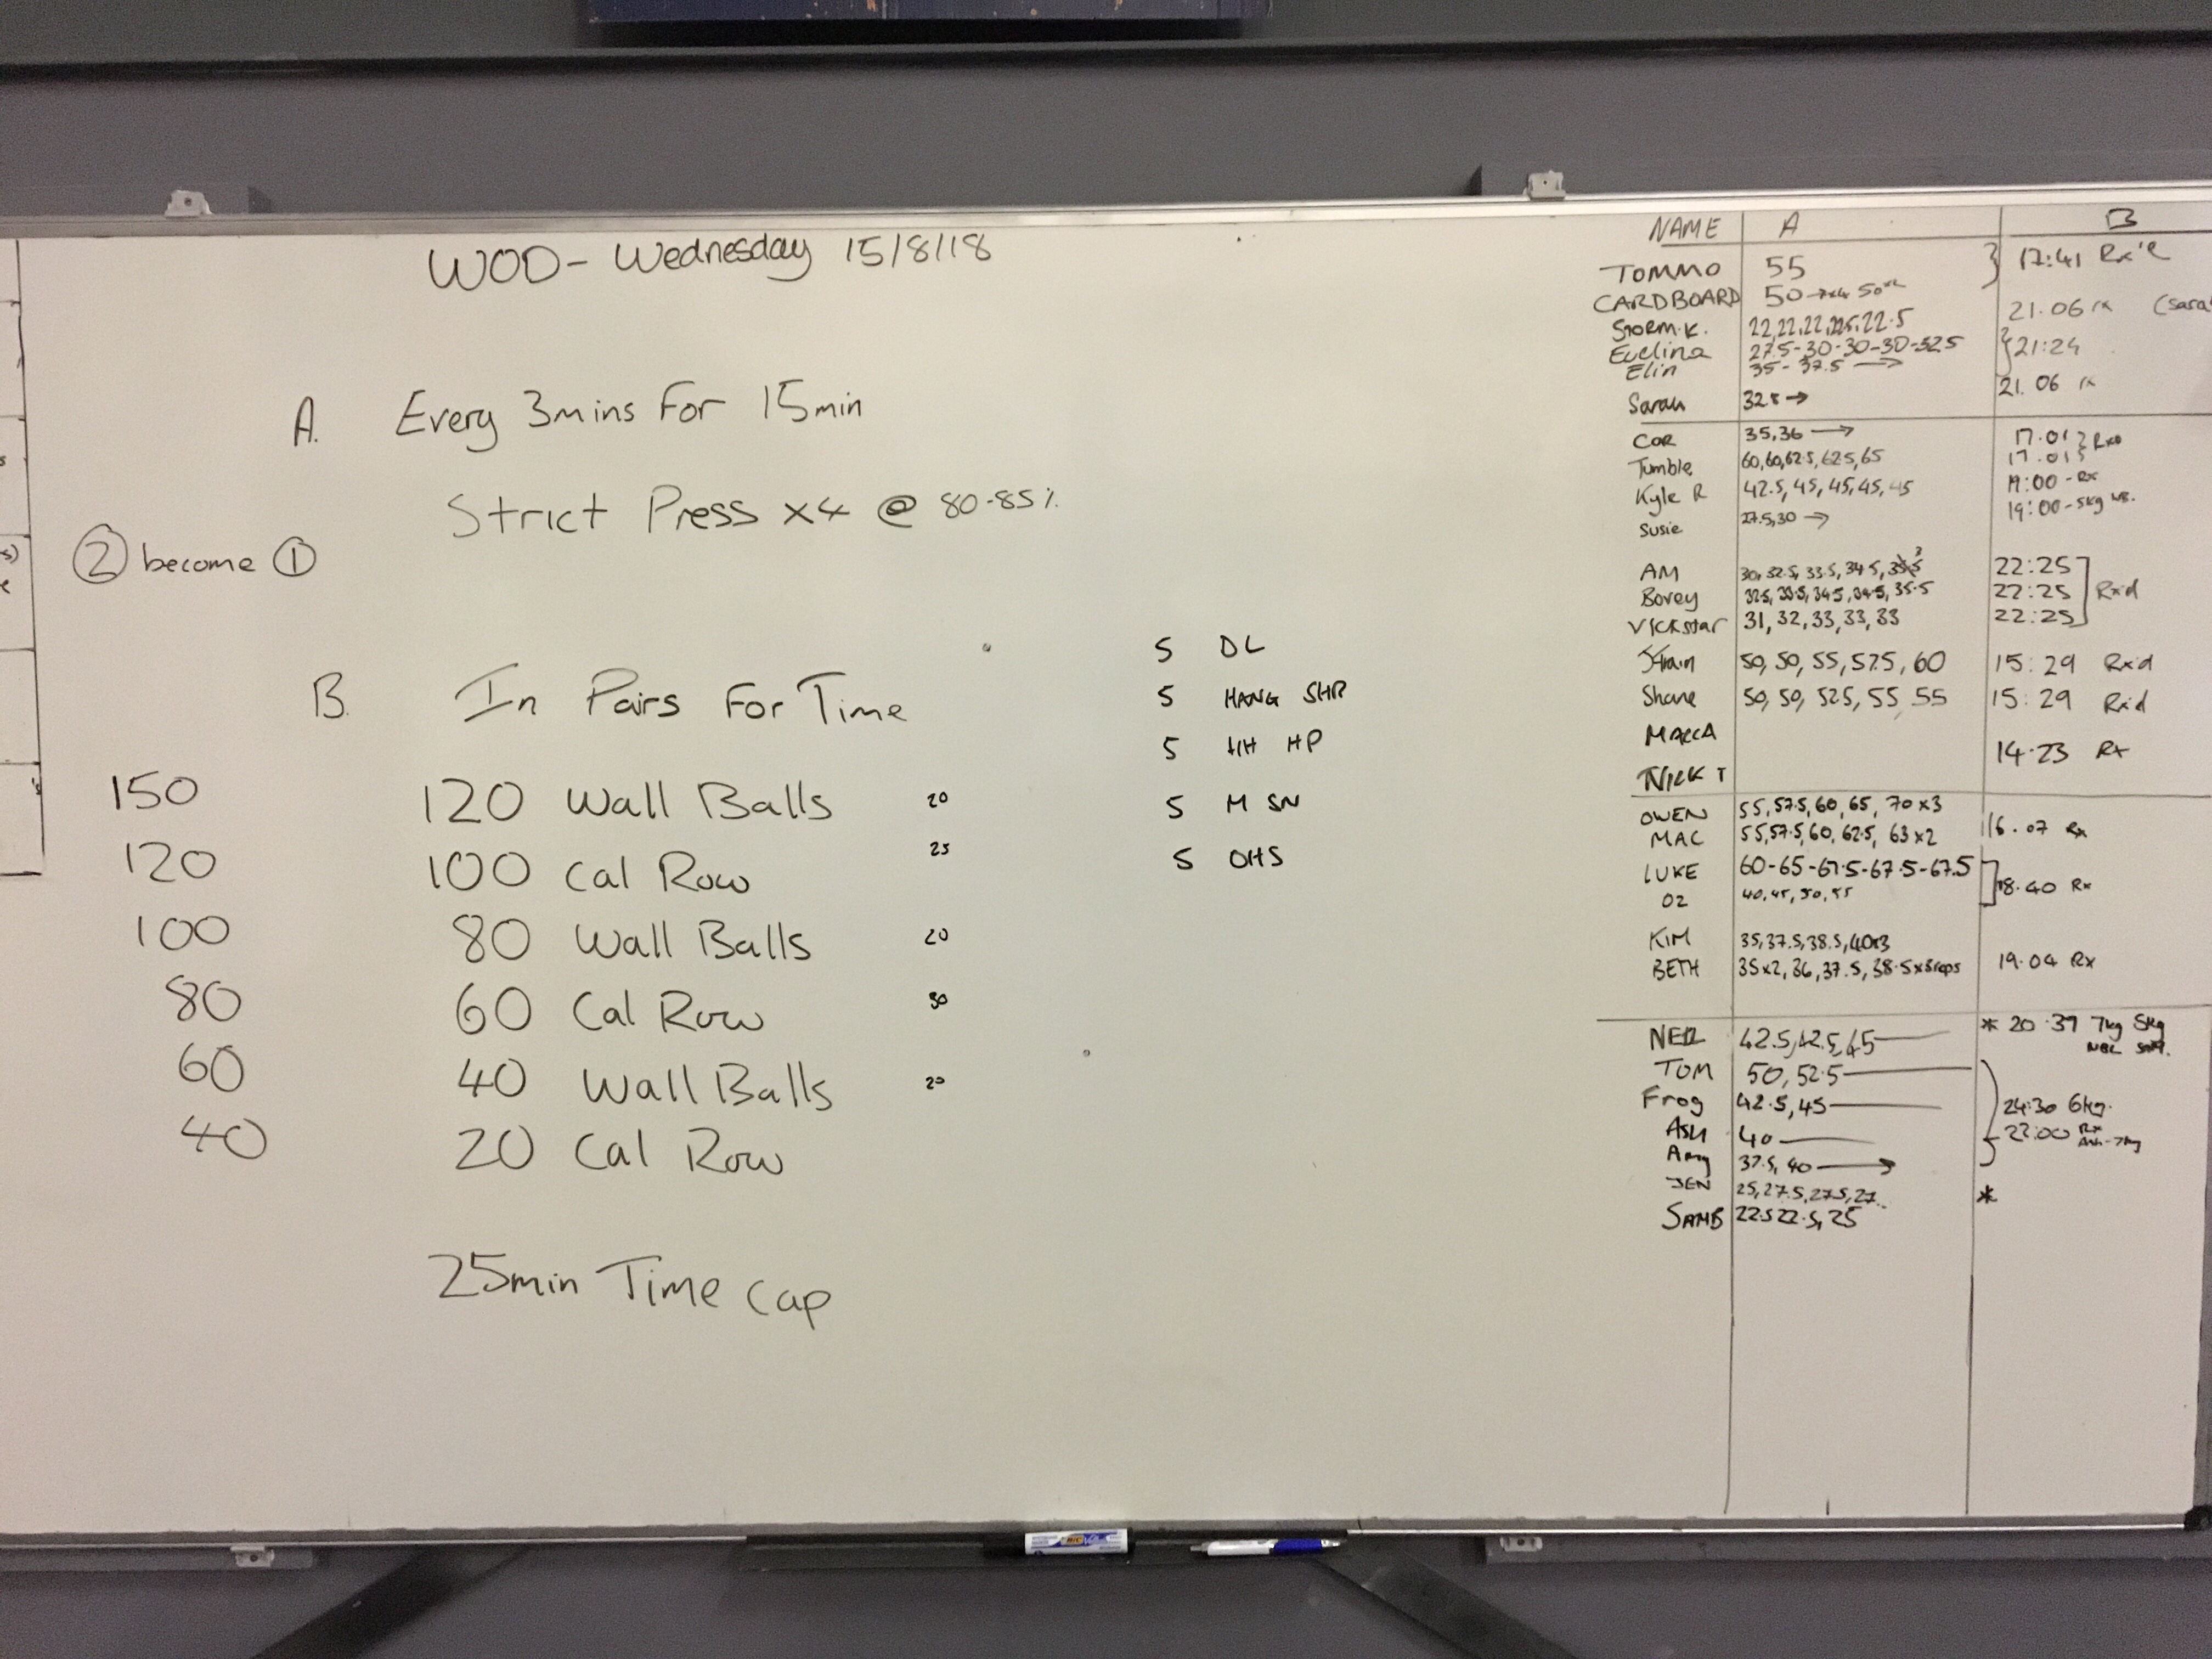 WOD - Wednesday 15/8/18
A. Every 3mins For 15min
Strict Press x4 @ 80-85%
② become ①
B. In Pairs For Time
150 120 Wall Balls 20
120 100 Cal Row 25
100 80 Wall Balls 20
80 60 Cal Row 30
60 40 Wall Balls 20
40 20 Cal Row
25min Time Cap
5 DL
5 HANG SHR
5 HP
5 M SN
5 OHS
NAME A B
TOMMO 55 17:41
CARDBOARD 50 21.06 rx
Storm.K. 22,22,22,22.5,22.5
Evelina 27.5-30-30-30-32.5 21:24
Elin 35-37.5 →
Sarah 32.5 → 21.06 rx
COR 35,36 → 17.01
Tumble 60,60,62.5,62.5,65 17.01
Kyle R 42.5,45,45,45,45 19:00 - Rx
Susie 27.5,30 → 19:00 - 5kg WB.
AM 30,32.5,33.5,34.5, 22:25
Bovey 32.5,33.5,34.5,34.5,35.5 22:25 Rx'd
Vickstar 31,32,33,33,33 22:25
50,50,55,57.5,60 15:29 Rx'd
Shane 50,50,52.5,55,55 15:29 Rx'd
MACCA
14.23 Rx
NICK T
OWEN 55,57.5,60,65,70x3
MAC 55,57.5,60,62.5,63x2 16.07 Rx
LUKE 60-65-67.5-67.5-67.5
O2 40,45,50,55 18.40 Rx
KIM 35,37.5,38.5,40x3
BETH 35x2,36,37.5,38.5x3reps 19.04 Rx
42.5,42.5,45 * 20.39 7kg 5kg
TOM 50,52.5
Frog 42.5,45 24:30 6kg.
ASH 40 Rx
Amy 37.5,40 →
JEN 25,27.5,27.5,27 *
SAMB 22.5 22.5,25